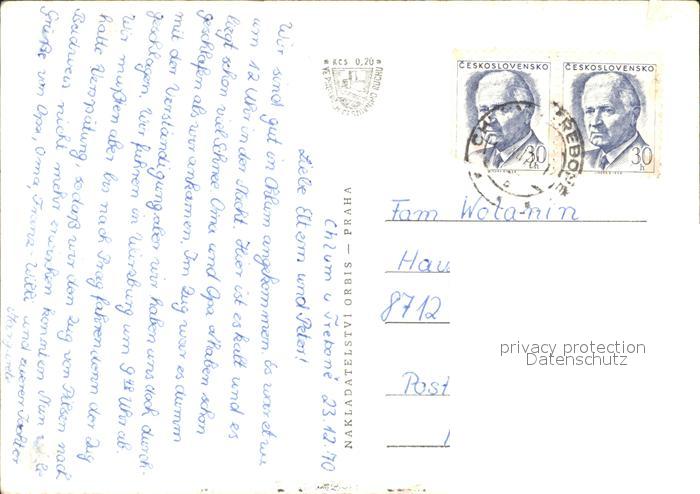 Chlum u Třebaně 23.12.70
Liebe Eltern und Peter!
Wir sind gut in Chlum angekommen. Es war etwa
um 12 Uhr in der Nacht. Hier ist es kalt und es
liegt schon viel Schnee. Oma und Opa haben schon
geschlafen als wir ankamen. Im Zug war es dumm
mit der Verständigung aber wir haben uns doch durch-
geschlagen. Wir fuhren in Würzburg um 9 Uhr ab.
Wir mußten aber bis nach Prag fahren denn der Zug
hatte Verspätung, sodaß wir den Zug von Pilsen nach
Budweis nicht mehr erreichen konnten. Nun
Grüße von Opa, Oma, Franz-Willi und eueren Tochter
NAKLADATELSTVÍ ORBIS — PRAHA
Kčs 0,20
ČESKOSLOVENSKO
30
h
ČESKOSLOVENSKO
30
h
Fam Wolanin
Hau
8712
Post
privacy protection
Datenschutz